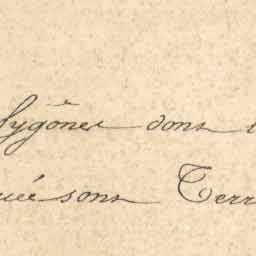 lygônes dont
sont Terr